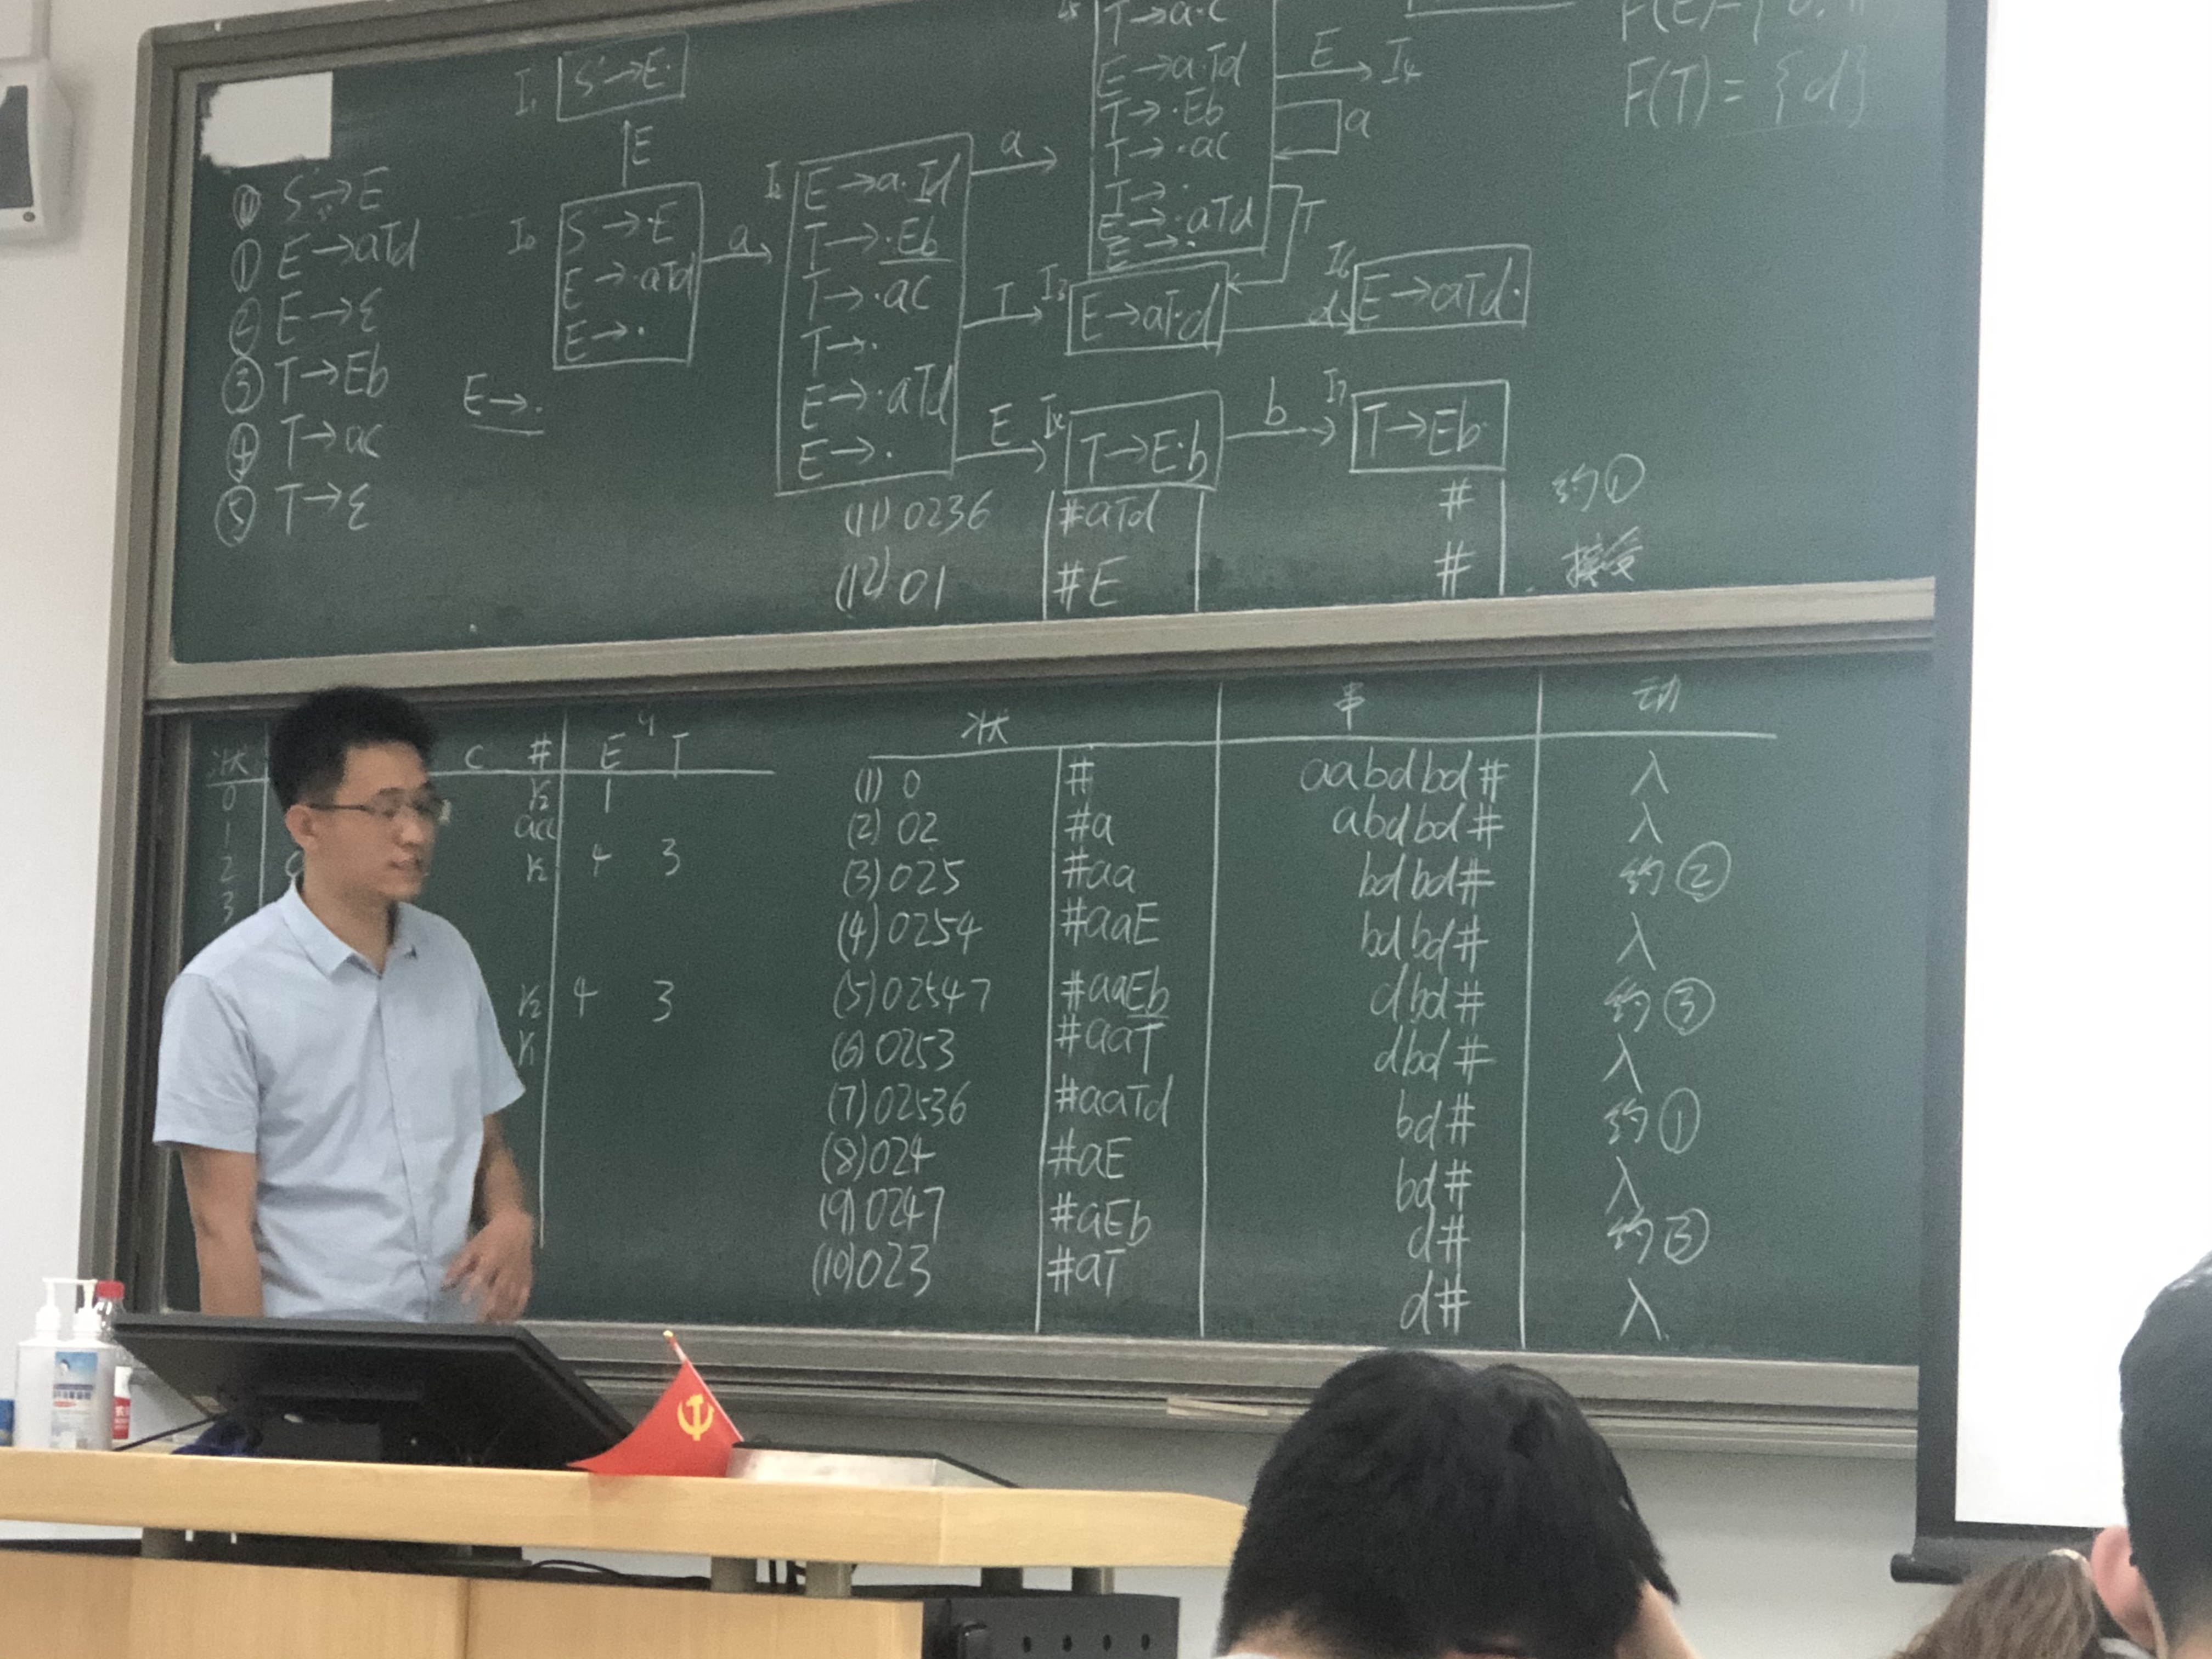 ⓪ S'→E
① E→aTd
② E→ε
③ T→Eb
④ T→ac
⑤ T→ε
E→.
I₁
S'→E.
E
I₀
S'→.E
E→.aTd
E→.
a
I₂
E→a.Td
T→.Eb
T→.ac
T→.
E→.aTd
E→.
a
T
E
I₅
T→a.c
E→a.Td
T→.Eb
T→.ac
T→.
E→.aTd
E→.
E
I₄
a
T
I₃
E→aT.d
d
I₆
E→aTd.
I₄
T→E.b
b
I₇
T→Eb.
F(T)={d}
(11) 0236 #aTd # 约①
(12) 01 #E # 接受
状 c # E T
0 r₂ 1
1 acc
2 r₂ 4 3
3
r₂ 4 3
r₁
状 串 动
(1) 0 # aabdbd# 入
(2) 02 #a abdbd# 入
(3) 025 #aa bdbd# 约②
(4) 0254 #aaE bdbd# 入
(5) 02547 #aaEb dbd# 约③
(6) 0253 #aaT dbd# 入
(7) 02536 #aaTd bd# 约①
(8) 024 #aE bd# 入
(9) 0247 #aEb d# 约③
(10) 023 #aT d# 入